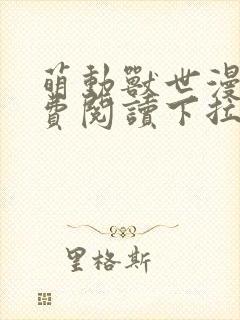 萌動獸世漫
費閱讀下拉
里格斯